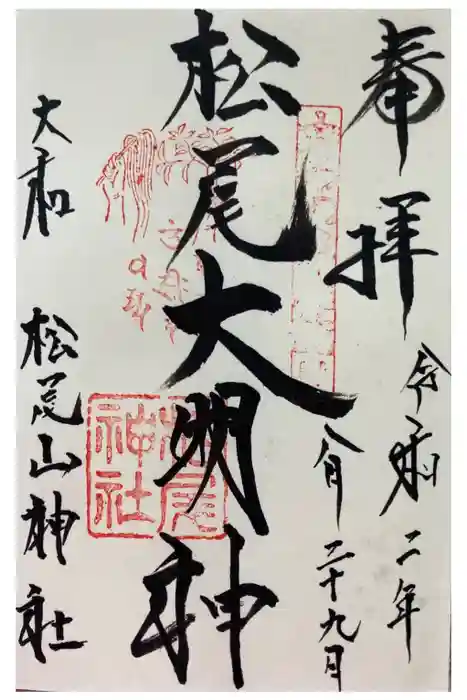 奉拝
令和二年
八月二十九日
松尾大明神
松尾神社
大和
松尾山神社